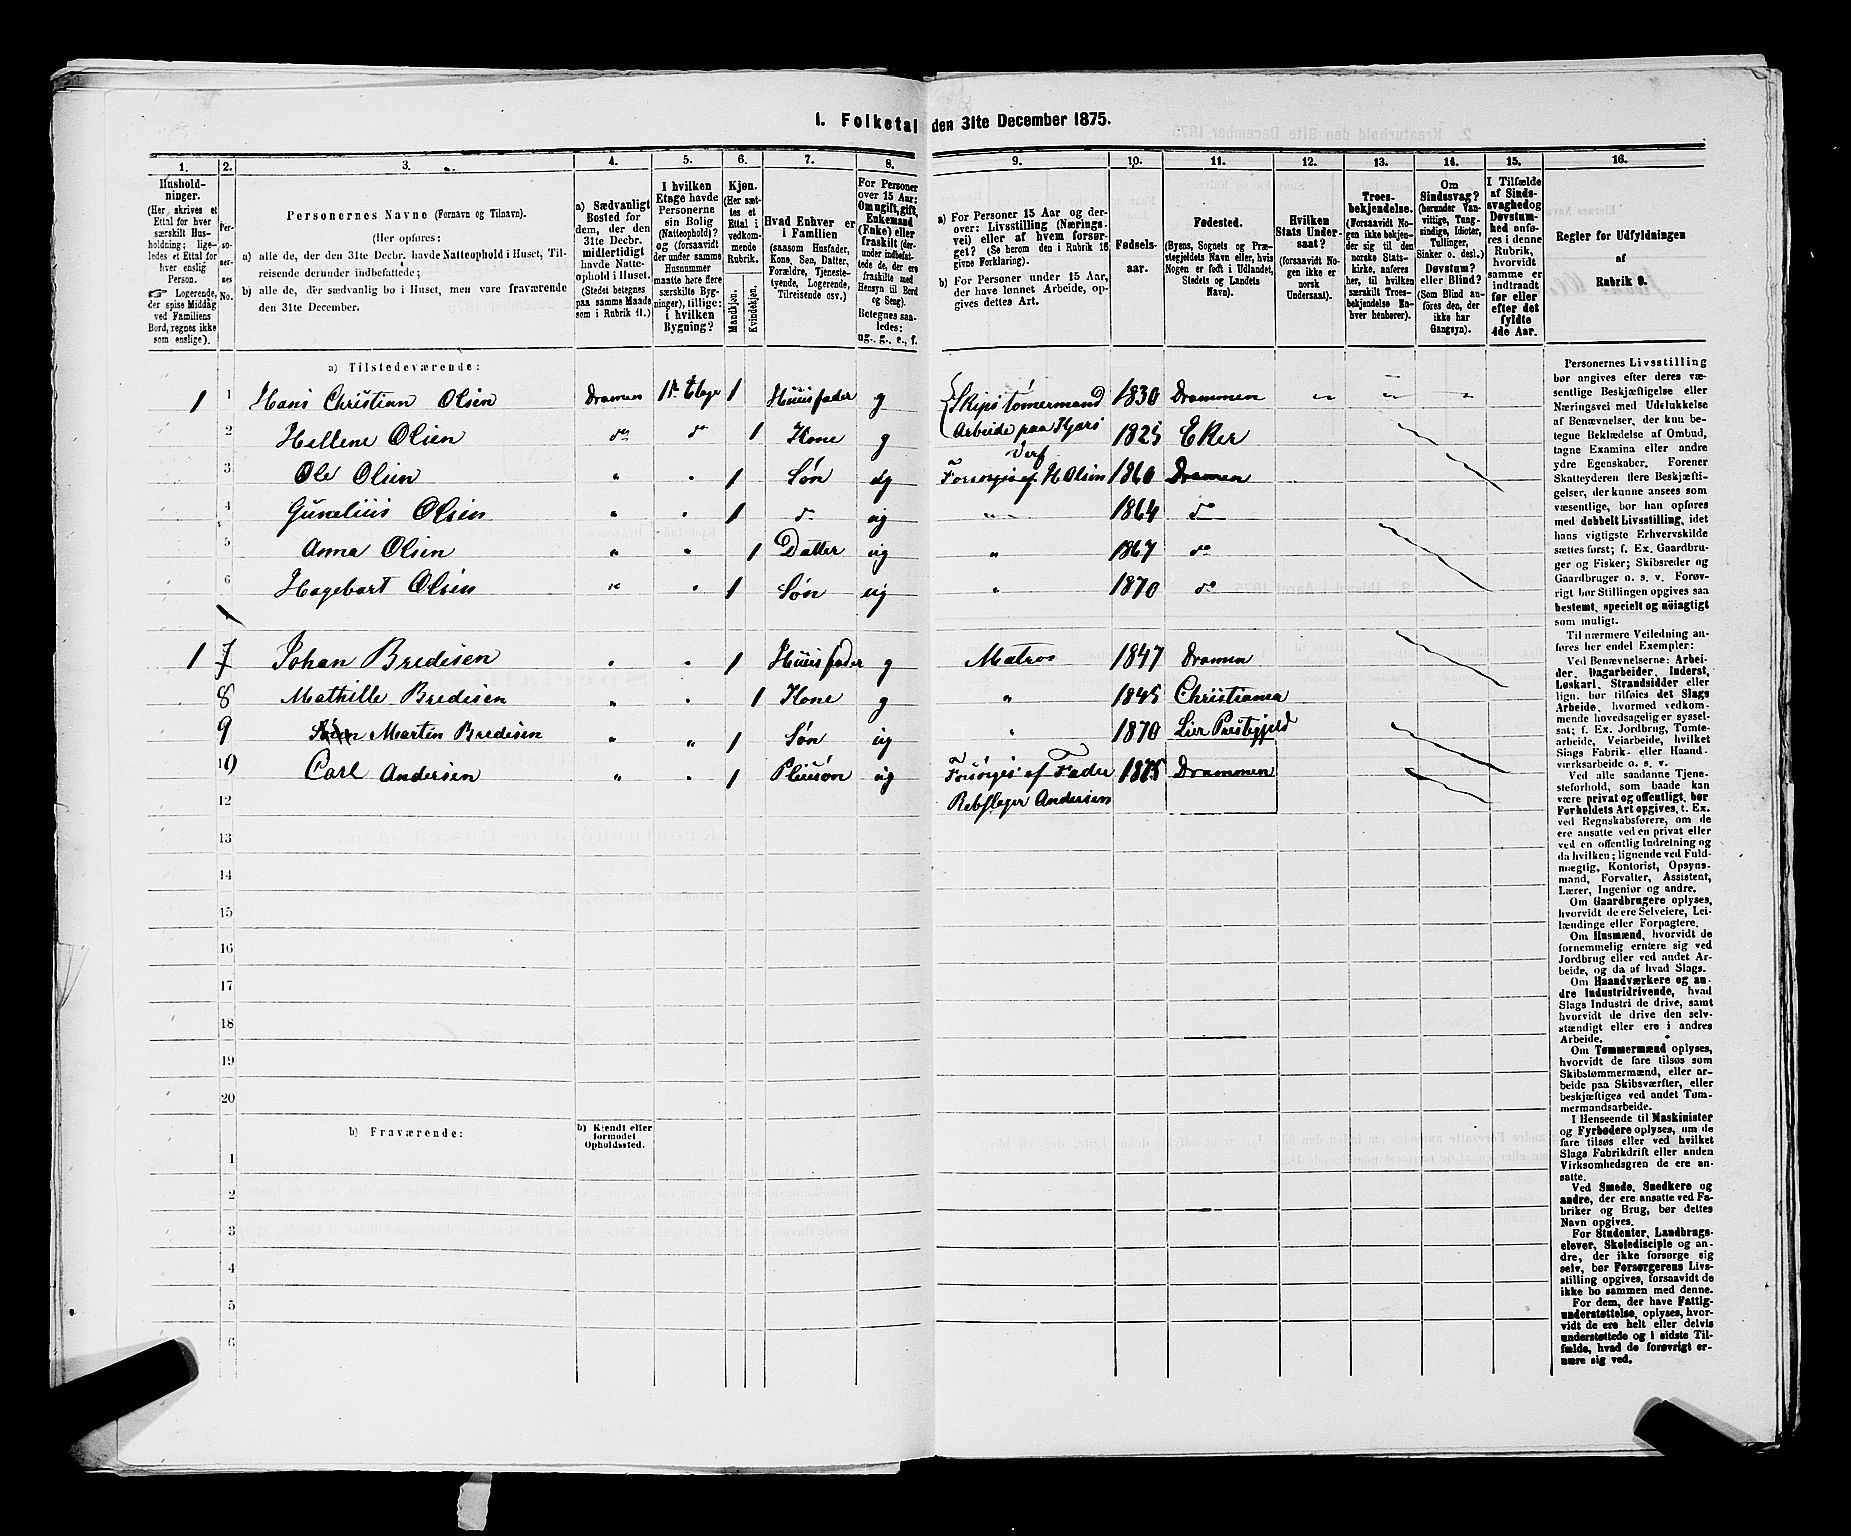 1. Folketal den 31te December 1875.
1. 2. 3. 4. 5. 6. 7. 8. 9. 10. 11. 12. 13. 14. 15. 16.
Hushold-
ninger.
(Her skrives et
Ettal for hver
særskilt Hus-
holdning; lige-
ledes et Ettal for
hver enslig
Person.
☞ Logerende,
der spise Middag
ved Familiens
Bord, regnes ikke
som enslige).
Per-
so-
ner-
nes
No.
Personernes Navne (Fornavn og Tilnavn).
(Her opføres:
a) alle de, der den 31te Decbr. havde Natteophold i Huset, Til-
reisende derunder indbefattede;
b) alle de, der sædvanlig bo i Huset, men vare fraværende
den 31te December.
a) Sædvanligt
Bosted for
dem, der den
31te Decbr.
midlertidigt
havde Natte-
ophold i Huset.
(Stedet betegnes
paa samme Maade
som i Rubrik 11.)
I hvilken
Etage havde
Personerne
sin Bolig
(Natteophold)?
og (forsaavidt
der under samme
Husnummer
maatte høre flere
særskilte Byg-
ninger), tillige:
i hvilken
Bygning?
Kjøn.
(Her sæt-
tes et
Ettal i
vedkom-
mende
Rubrik.
Mandkjøn.
Kvindekjøn.
Hvad Enhver er
i Familien
(saasom Husfader,
Kone, Søn, Datter,
Forældre, Tjeneste-
tyende, Logerende,
Tilreisende osv.)
For Personer
over 15 Aar:
Om ugift, gift,
Enkemand
(Enke) eller
fraskilt (der-
under indbefat-
tede de, der ere
fraskilte med
Hensyn til Bord
og Seng).
Betegnes saa-
ledes:
ug., g., e., f.
a) For Personer 15 Aar og der-
over: Livsstilling (Nærings-
vei) eller af hvem forsør-
get? (Se herom den i Rubrik 16
givne Forklaring).
b) For Personer under 15 Aar,
der have lønnet Arbeide, op-
gives dettes Art.
Fødsels-
aar.
Fødested.
(Byens, Sognets og Præ-
stegjeldets Navn eller, hvis
Nogen er født i Udlandet,
Stedets og Landets
Navn).
Hvilken
Stats Under-
saat?
(forsaavidt No-
gen ikke er
norsk
Undersaat).
Troes-
bekjendelse.
(Forsaavidt No-
gen ikke bekjen-
der sig til den
norske Stats-
kirke, anføres
her, til hvilken
særskilt Troes-
bekjendelse En-
hver henhører).
Om
Sindssvag?
(herunder Van-
vittige, Tung-
sindige, Idioter,
Tullinger,
Sinker o. desl.)
Døvstum?
eller Blind?
(Som Blind an-
føres den, der
ikke har
Gangsyn).
I Tilfælde
af Sinds-
svaghed og
Døvstum-
hed anfø-
res i denne
Rubrik,
hvorvidt
samme er
indtraadt
før eller
efter det
fyldte
4de Aar.
Regler for Udfyldningen
af
Rubrik 9.
a) Tilstedeværende:
1 1 Hans Christian Olsen Dramen 1te Etage 1 Huusfader g Skipstømermand 1830 Drammen
2 Hellene Olsen do do 1 Kone g Arbeide paa 1825 Eker
Verf
3 Ole Olsen " " 1 Søn ug Forsørges af H Olsen 1860 Dramen
4 Olsen " " 1 do ug " 1864 do
5 Anna Olsen " " 1 Datter ug " 1867 do
6 Hagebart Olsen " " 1 Søn ug " 1870 do
1 7 Johan Bredesen " " 1 Huusfader g Matros 1847 Dramen
8 Mathilde Bredesen " " 1 Kone g " 1845 Christiania
9 Martin Bredesen " " 1 Søn ug " 1870 Lier Prestegjeld
10 Carl Andersen " " 1 Pleiesøn ug Forsørges af Fader 1875 Drammen
12 Rebslager Andersen
13
14
15
16
17
18
19
20
b) Fraværende:
b) Kjendt eller
formodet
Opholdssted.
1
2
3
4
5
6
Personernes Livsstilling
bør angives efter deres væ-
sentlige Beskjæftigelse eller
Næringsvei med Udelukkelse
af Benævnelser, der kun be-
tegne Beklædelse af Ombud,
tagne Examina eller andre
ydre Egenskaber. Forener
Skatteyderen flere Beskjæfti-
gelser, der kunne ansees som
væsentlige, bør han opføres
med dobbelt Livsstilling, idet
hans vigtigste Erhvervskilde
sættes først; f. Ex. Gaardbru-
ger og Fisker; Skibsreder og
Gaardbruger o. s. v. Forøv-
rigt bør Stillingen opgives saa
bestemt, specielt og nöiagtigt
som muligt.
Til nærmere Veiledning an-
føres her endel Exempler:
Ved Benævnelserne: Arbei-
der, Dagarbeider, Inderst,
Løskarl, Strandsidder eller
lign. bør tilføies det Slags
Arbeide, hvormed vedkom-
mende hovedsagelig er syssel-
sat; f. Ex. Jordbrug, Tomte-
arbeide, Veiarbeide, hvilket
Slags Fabrik- eller Haand-
værksarbeide o. s. v.
Ved alle saadanne Tjene-
steforhold, som baade kan
være privat og offentligt, bør
Forholdets Art opgives, t. Ex.
ved Regnskabsførere, om de
ere ansatte ved en privat eller
ved en offentlig Indretning og
da hvilken; lignende ved Fuld-
mægtig, Kontorist, Opsyns-
mand, Forvalter, Assistent,
Lærer, Ingeniør og andre.
Om Gaardbrugere oplyses,
hvorvidt de ere Selveiere, Lei-
lændinge eller Forpagtere.
Om Husmænd, hvorvidt de
fornemmelig ernære sig ved
Jordbrug eller ved andet Ar-
beide, og da af hvad Slags.
Om Haandværkere og an-
dre Industridrivende, hvad
Slags Industri de drive, samt
hvorvidt de drive den selv-
stændigt eller ere i andres
Arbeide.
Om Tømmermænd oplyses,
hvorvidt de fare tilsøs som
Skibstømmermænd, eller ar-
beide paa Skibsværfter, eller
beskjæftiges ved andet Tøm-
mermandsarbeide.
I Henseende til Maskinister
og Fyrbødere oplyses, om de
fare tilsøs eller ved hvilket
Slags Fabrikdrift eller anden
Virksomhedsgren de ere an-
satte.
Ved Smede, Snedkere og
andre, der ere ansatte ved Fa-
briker og Brug, bør dettes
Navn opgives.
For Studenter, Landbrugs-
elever, Skoledisciple og an-
dre, der ikke forsørge sig
selv, bør Forsørgerens Livs-
stilling opgives, forsaavidt de
ikke bo sammen med denne.
For dem, der have Fattig-
understøttelse, oplyses, hvor-
vidt de ere helt eller delvis
understøttede og i sidste Til-
fælde, hvad de forøvrigt er-
nære sig ved.